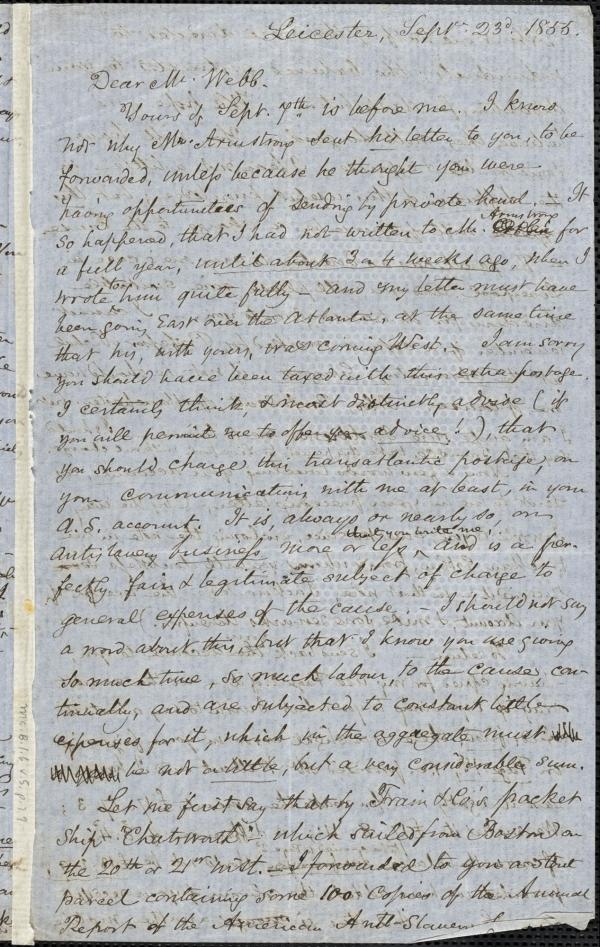 Leicester, Sept. 23d. 1855.
Dear Mr. Webb.
Yours of Sept. 7th is before me. I know
not why Mr. Armstrong sent his letter to you, to be
forwarded, unless because he thought you were
having opportunities of sending by private hand. – It
so happened, that I had not written to Mr. Armstrong for
a full year, until about 3 or 4 weeks ago, when I
wrote to him quite fully – and my letter must have
been going East over the Atlantic, at the same time
that his, with yours, was coming West. I am sorry
you should have been taxed with this extra postage.
I certainly think, & most distinctly advise (if
you will permit me to offer you advice!), that
you should charge this transatlantic postage, on
your communications with me at least, in your
A. S. account. It is, always or nearly so, on
Antislavery business, more or less, that you write me, and is a per-
fectly fair & legitimate subject of charge to
general expenses of the cause. – I should not say
a word about this, but that I know you are giving
so much time, so much labour, to the cause, con-
tinually, and are subjected to constant little
expenses for it, which in the aggregate must
be not a little, but a very considerable sum.
Let me first say that by Train & Co's packet
Ship "Chatsworth" – which sailed from Boston on
the 20th or 21st inst. – I forwarded to you a
parcel containing some 100 copies of the Annual
Report of the American Anti-Slavery